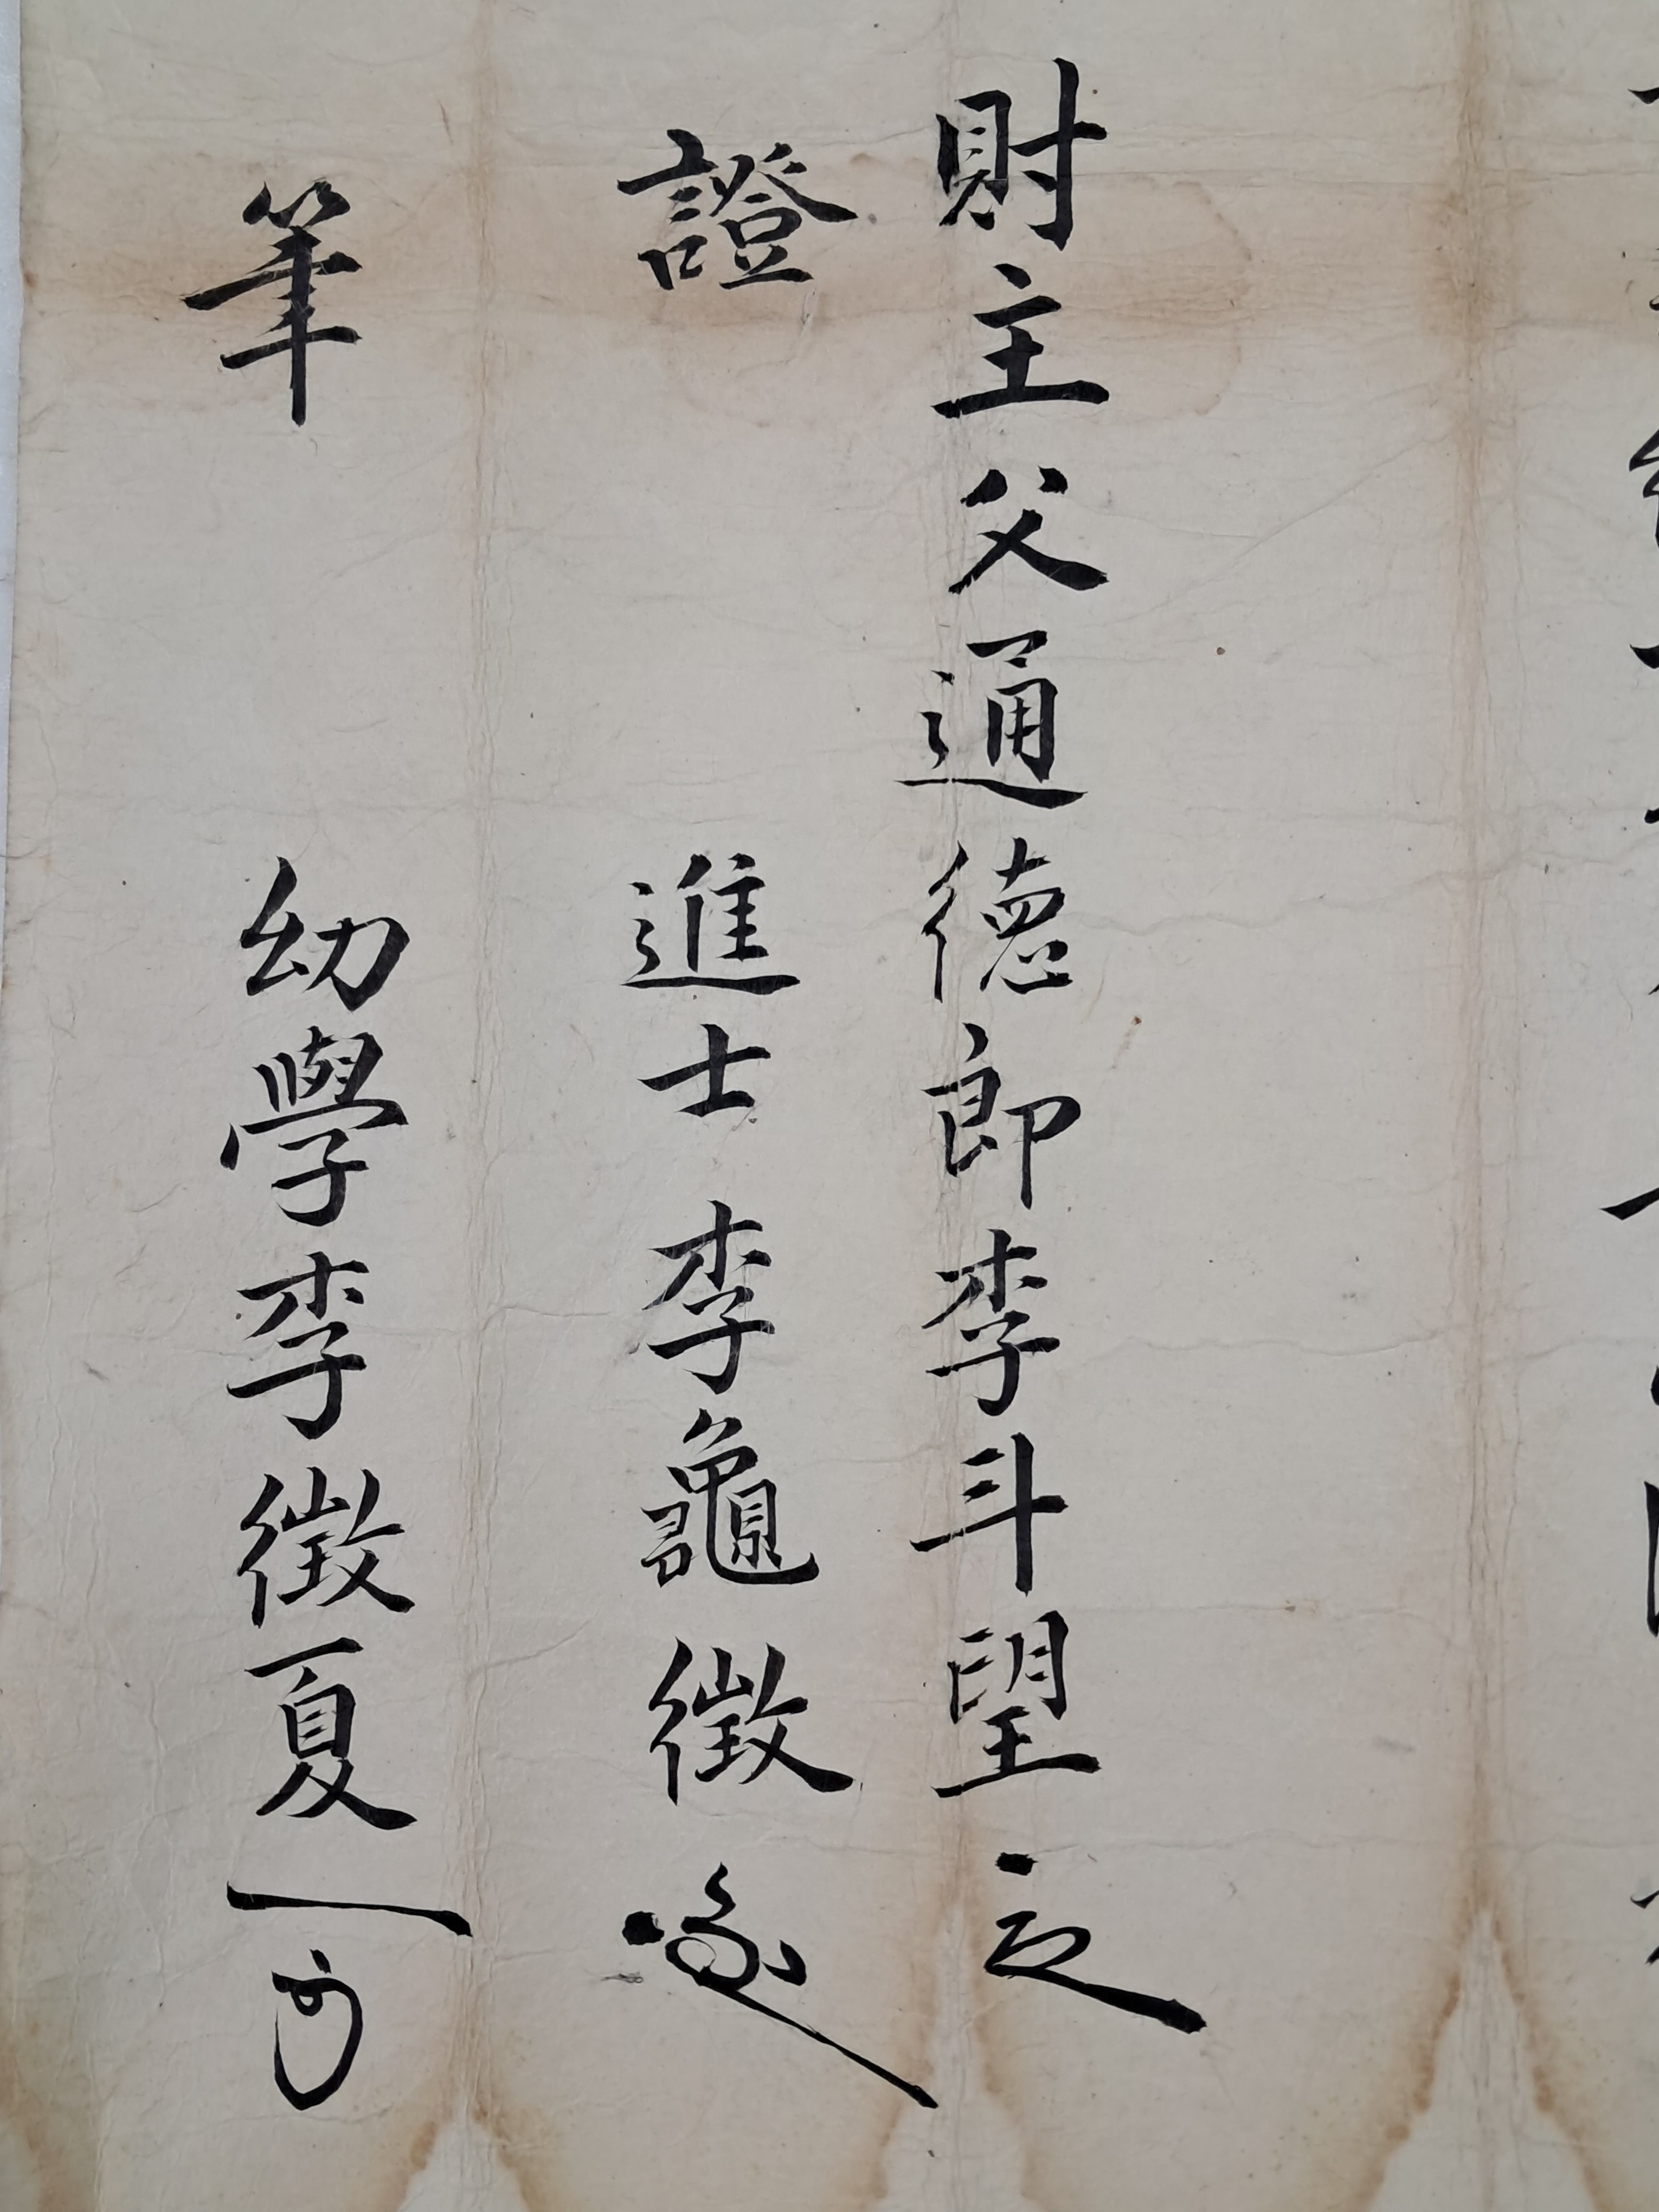 財主父通德郎李斗望
證 進士李龜徵
筆 幼學李徵夏